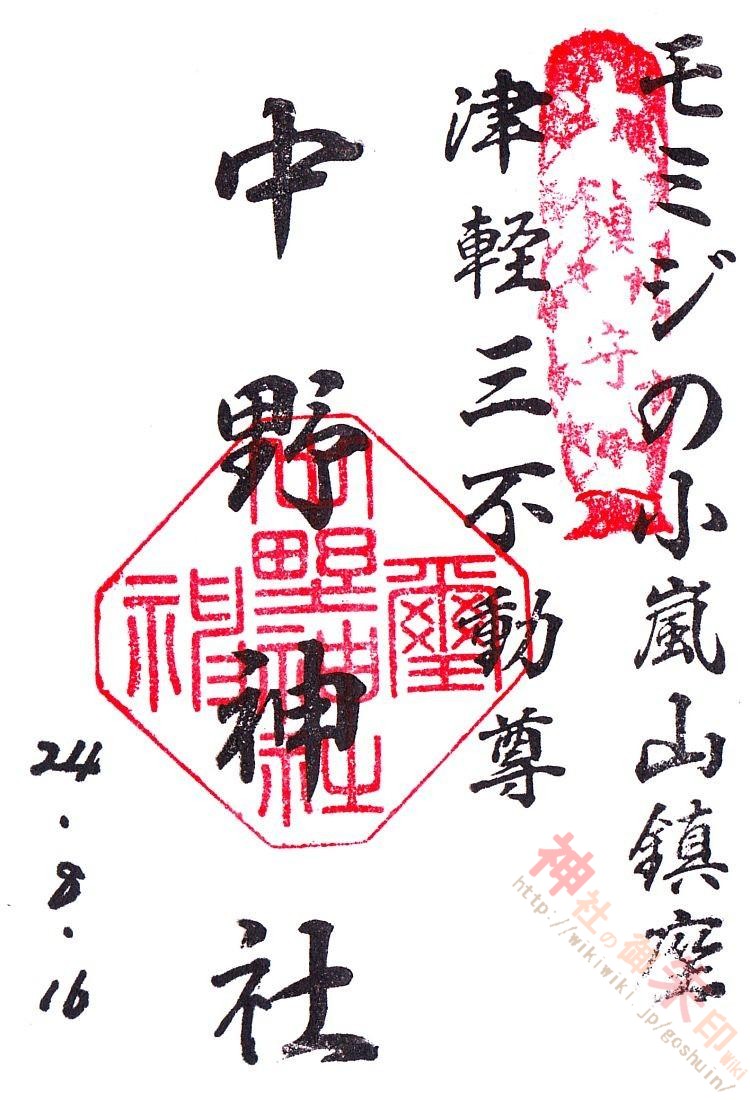 モミジの小嵐山鎮座
津軽三不動尊
中野神社
24.8.16
鎮守
中野神社
神璽
神社の御朱印Wiki
http://wikiwiki.jp/goshuin/